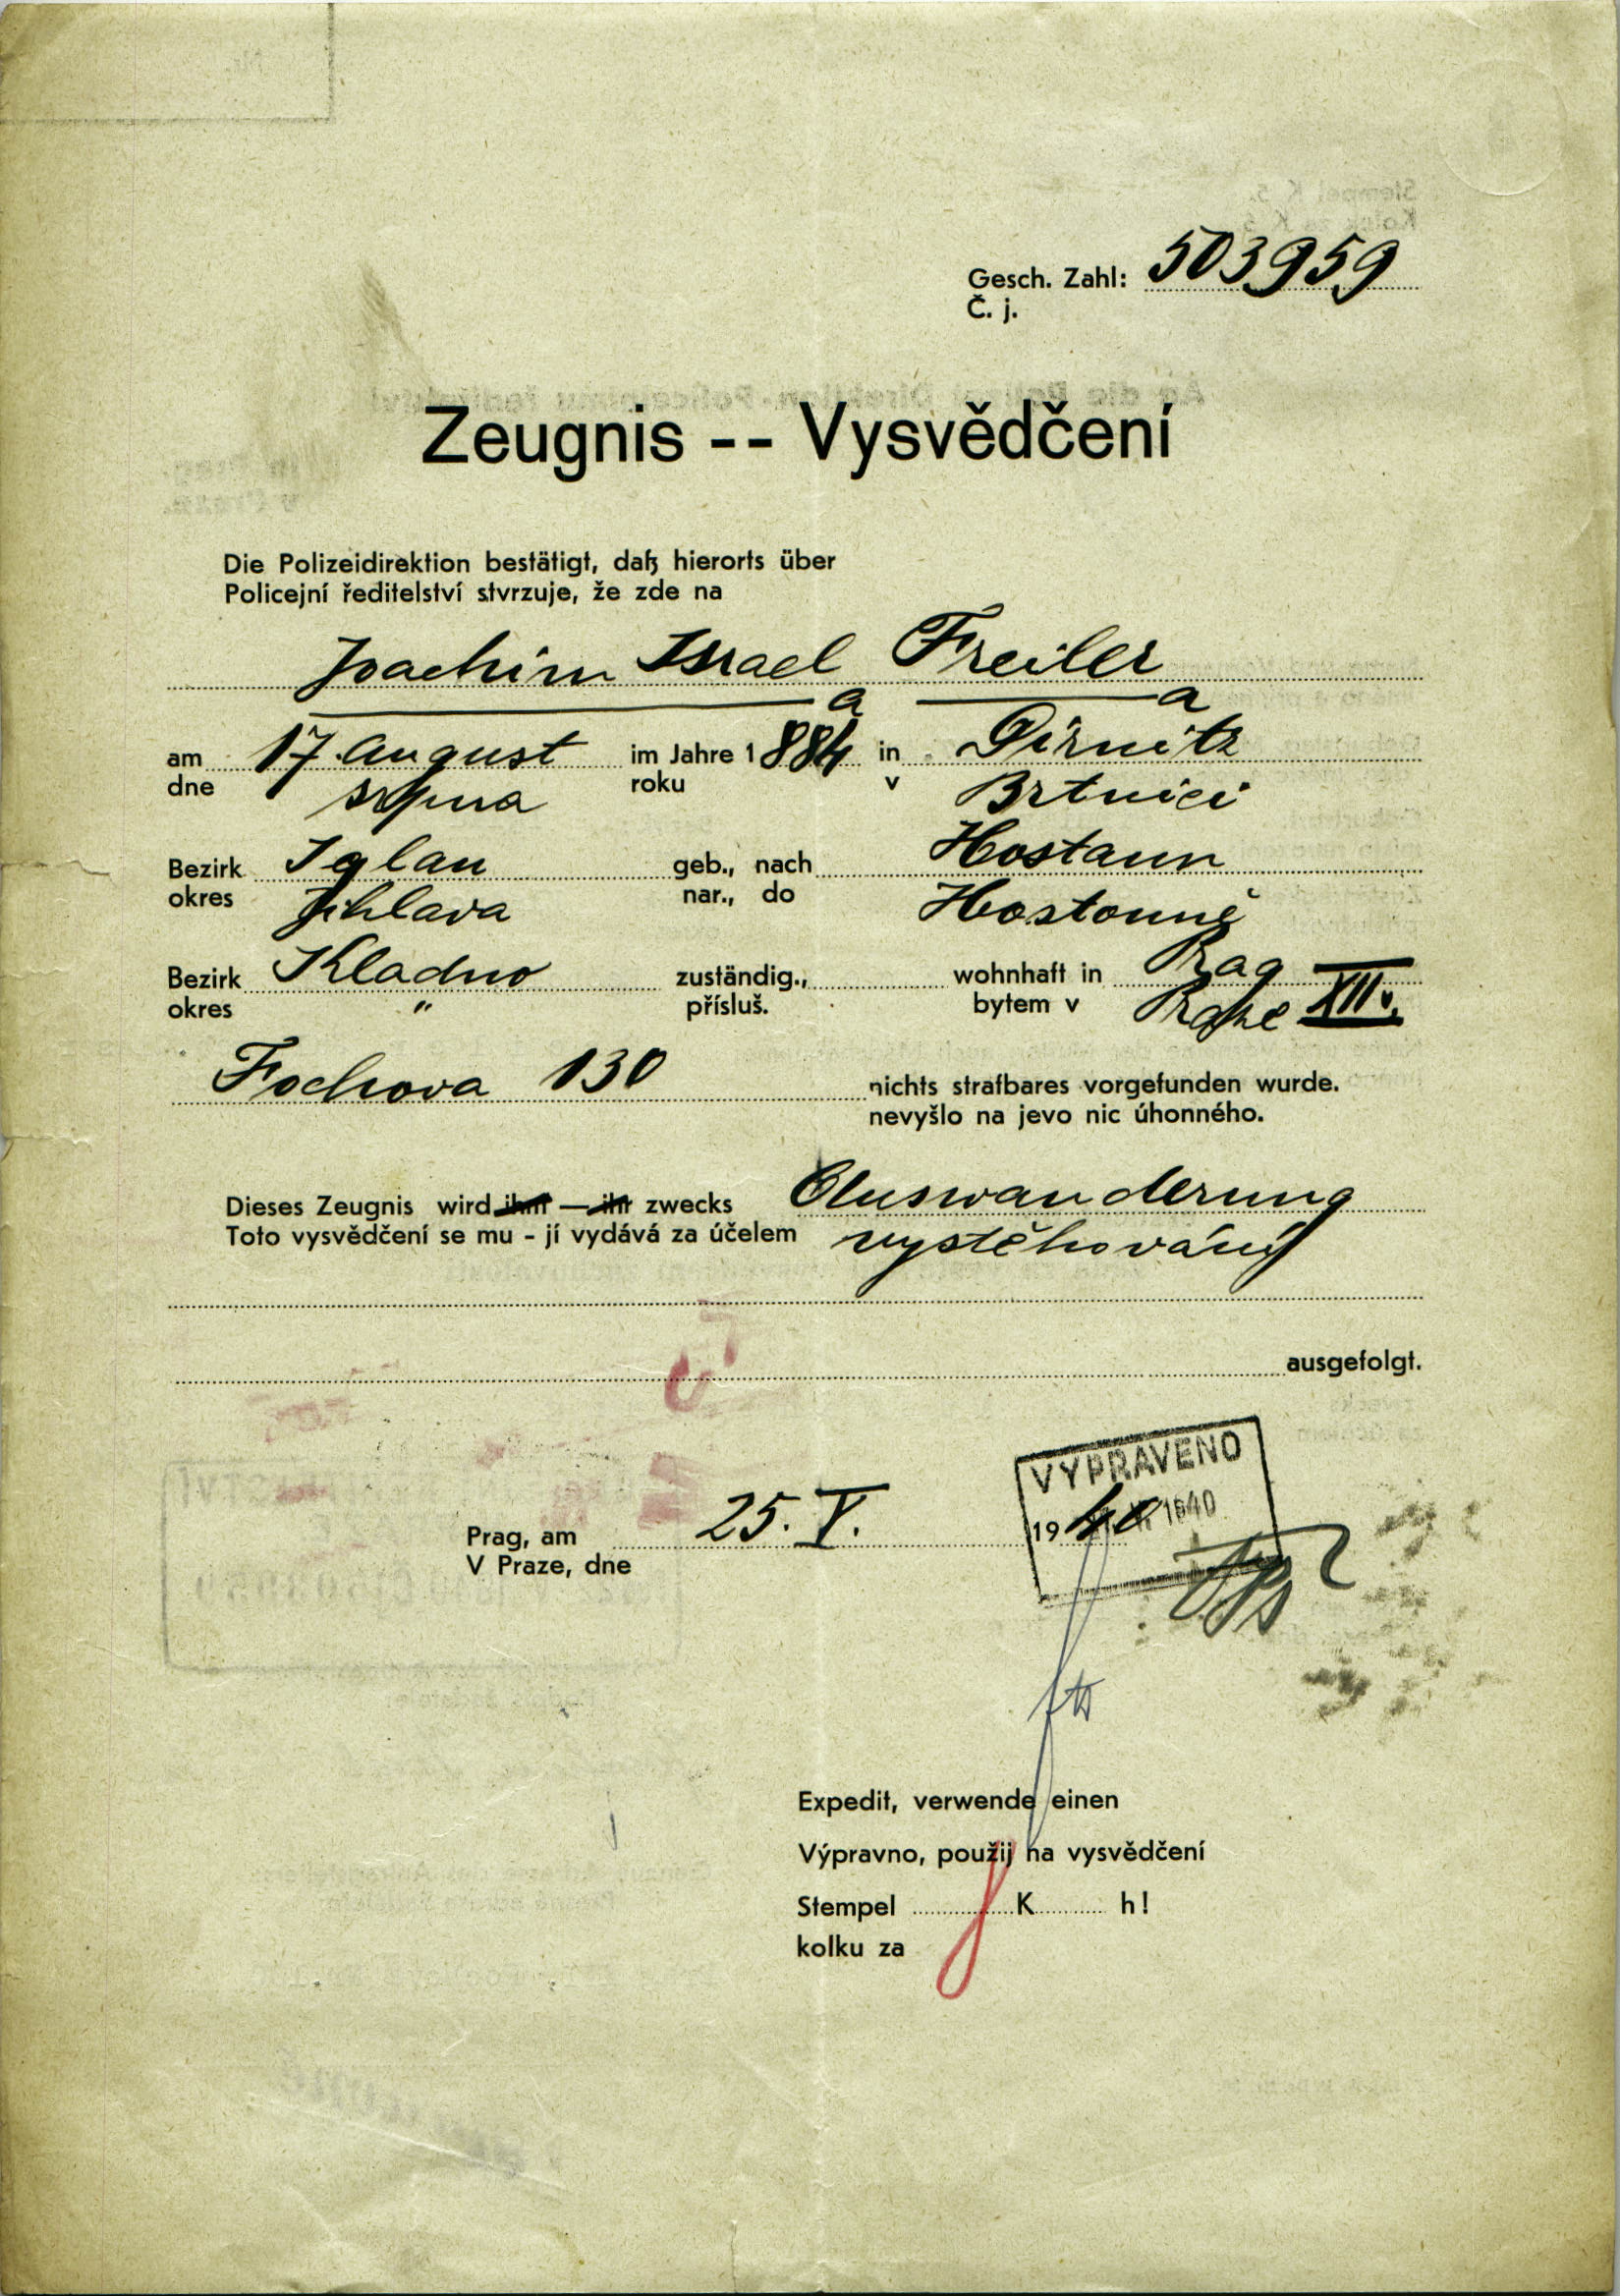 Gesch. Zahl: 503959
Č. j.
Zeugnis -- Vysvědčení
Die Polizeidirektion bestätigt, daß hierorts über
Policejní ředitelství stvrzuje, že zde na
Joachim Israel Freiler
a a
am 17. August im Jahre 1884 in Pirnitz
dne srpna roku v Brtnici
Bezirk Iglau geb., nach Hostaun
okres Jihlava nar., do Hostouně
Bezirk Kladno zuständig., wohnhaft in Prag XII.
okres " přísluš. bytem v Praze
Fochova 130 nichts strafbares vorgefunden wurde.
nevyšlo na jevo nic úhonného.
Dieses Zeugnis wird ihm — ihr zwecks Auswanderung
Toto vysvědčení se mu - jí vydává za účelem vystěhování
ausgefolgt.
VYPRAVENO
Prag, am 25. V. 1940
V Praze, dne
Expedit, verwende einen
Výpravno, použij na vysvědčení
Stempel K h!
kolku za